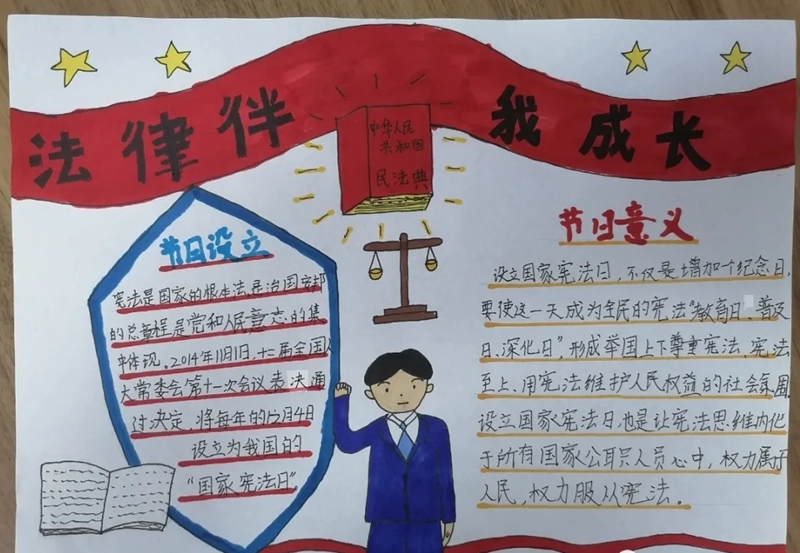 法律伴
我成长
中华人民
共和国
民法典
节日设立
宪法是国家的根本法,是治国安邦
的总章程是党和人民意志的集
中体现。2014年11月1日,十二届全国人
大常委会第十一次会议表决通
过决定,将每年的12月4日
设立为我国的
“国家宪法日”。
节日意义
设立国家宪法日,不仅是增加个纪念日,
要使这一天成为全民的宪法“教育日、普及
日、深化日”,形成举国上下尊重宪法、宪法
至上、用宪法维护人民权益的社会氛围
设立国家宪法日,也是让宪法思维内化
于所有国家公职人员心中,权力属于
人民,权力服从宪法。